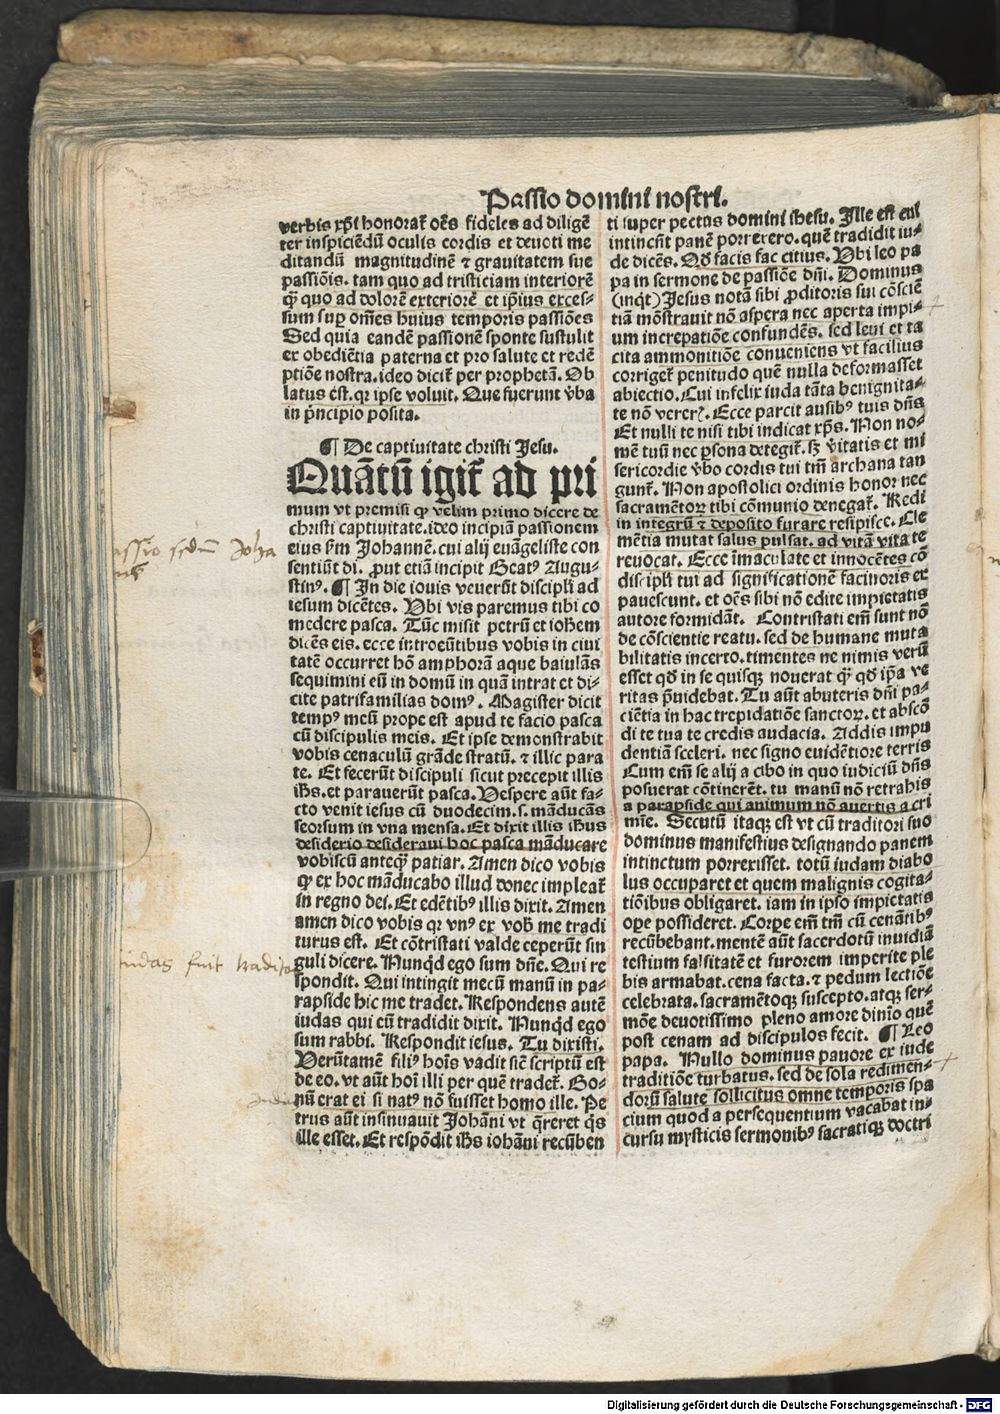 Passio domini nostri.
verbis xp̄i honorat̄ oēs fideles ad diligē
ter inspiciēdū oculis cordis et deuoti me
ditandū magnitudinē ⁊ grauitatem sue
passiōis. tam quo ad tristiciam interiorē
qꝫ quo ad dolorē exteriorē et ip̄ius exces-
sum suꝑ om̄es huius temporis passiōes
Sed quia eandē passionē sponte sustulit
ex obediētia paterna et pro salute et redē
ptiōe nostra. ideo dicit̄ per prophetā. Ob
latus ēst. qr ipse voluit. Que fuerunt v̄ba
in p̄ncipio posita.
¶ De captiuitate christi Jesu.
Quātū igit̄ ad pri
mum vt premisi qꝫ velim primo dicere de
christi captiuitate. ideo incipiā passionem
eius ẜm Johannē. cui alij euāgeliste con
sentiūt di. ꝓut etiā incipit Beatꝰ Augu-
stinꝰ. ¶ In die iouis veuerūt discipl̄i ad
iesum dicētes. Vbi vis paremus tibi co
medere pasca. Tūc misit petrū et ioh̄em
dicēs eis. ecce introeūtibus vobis in ciui
tatē occurret hō amphorā aque baiulās
sequimini eū in domū in quā intrat et di-
cite patrifamilias domꝰ. Magister dicit
tempꝰ meū prope est apud te facio pasca
cū discipulis meis. Et ipse demonstrabit
vobis cenaculū grāde stratū. ⁊ illic para
te. Et fecerūt discipuli sicut precepit illis
ih̄s. et parauerūt pasca. Vespere aūt fa-
cto venit iesus cū duodecim. s. māducās
seorsum in vna mensa. Et dixit illis ih̄us
desiderio desideraui hoc pasca māducare
vobiscū anteqꝫ patiar. Amen dico vobis
qꝫ ex hoc māducabo illud donec impleat̄
in regno dei. Et edētibꝰ illis dixit. Amen
amen dico vobis qr vnꝰ ex vob̄ me tradi
turus est. Et cōtristati valde ceperūt sin
guli dicere. Nunqd̄ ego sum dn̄e. Qui re
spondit. Qui intingit mecū manū in pa-
rapside hic me tradet. Respondens autē
iudas qui eū tradidit dixit. Nunqd̄ ego
sum rabbi. Respondit iesus. Tu dixisti.
Verūtamē filiꝰ hoīs vadit sic̄ scriptū est
de eo. vt aūt hoī illi per quē tradet̄. Bo-
nū erat ei si natꝰ nō fuisset homo ille. Pe
trus aūt insinuauit Johāni vt q̄reret q̄s
ille esset. Et respōdit ih̄s iohāni recūben
ti super pectus domini ihesu. Ille est cui
intincsūt panē porrexero. quē tradidit iu-
de dicēs. Qd̄ facis fac citius. Vbi leo pa
pa in sermone de passiōe dn̄i. Dominus
(inqt̄) Jesus notā sibi ꝓditoris sui cōsciē
tiā mōstrauit nō aspera nec aperta impi-
um increpatiōe confundēs. sed leui et ta
cita ammonitiōe conueniens vt facilius
corriget̄ penitudo quē nulla deformasset
abiectio. Cui infelix iuda tāta benignita-
te nō vererꝭ. Ecce parcit ausibꝰ tuis dn̄s
Et nulli te nisi tibi indicat xp̄s. Non no-
mē tuū nec ꝑsona detegit̄. sꝫ v̄itatis et mi
sericordie v̄bo cordis tui tm̄ archana tan
gunt̄. Non apostolici ordinis honor nec
sacramētoꝝ tibi cōmunio denegat̄. Redi
in integrū ⁊ deposito furare resipisce. Cle
mētia mutat salus pulsat. ad vitā vita te
reuocat. Ecce īmaculate et innocētes cō
discipl̄i tui ad significationē facinoris ex
pauescunt. et oēs sibi nō edite impietatis
autore formidāt. Contristati em̄ sunt nō
de cōscientie reatu. sed de humane muta
bilitatis incerto. timentes ne nimis verū
esset qd̄ in se quisqꝫ nouerat qꝫ qd̄ ip̄a ve
ritas p̄uidebat. Tu aūt abuteris dn̄i pa-
ciētia in hac trepidatiōe sanctoꝝ. et abscō
di te tua te credis audacia. Addis impu
dentiā sceleri. nec signo euidētiore terris
Cum em̄ se alij a cibo in quo iudiciū dn̄s
posuerat cōtinerēt. tu manū nō retrahis
a parapside qui animum nō auertis a cri
mīe. Secutū itaqꝫ est vt cū traditori suo
dominus manifestius designando panem
intinctum porrexisset. totū iudam diabo
lus occuparet et quem malignis cogita-
tiōibus obligaret. iam in ipso impietatis
oꝑe possideret. Corꝑe em̄ tm̄ cū cenātibꝰ
recūbebant. mentē aūt sacerdotū inuidiā
testium falsitatē et furorem imperite ple
bis armabat. cena facta. ⁊ pedum lectiōe
celebrata. sacramētoqꝫ suscepto. atqꝫ ser-
mōe deuotissimo pleno amore diuīo quē
post cenam ad discipulos fecit. ¶ Leo
papa. Nullo dominus pauore ex iude
traditiōe turbatus. sed de sola redimen-
dorū salute sollicitus omne temporis spa
cium quod a persequentium vacabat in-
cursu mysticis sermonibꝰ sacratiqꝫ doctri
iudas fuit traditor
Digitalisierung gefördert durch die Deutsche Forschungsgemeinschaft - DFG